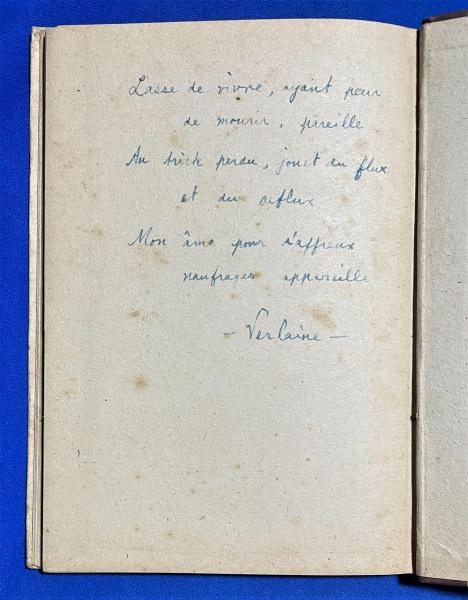 Lasse de vivre, ayant peur
de mourir, pareille
Au brick perdu, jouet du flux
et du reflux
Mon âme pour d'affreux
naufrages appareille
- Verlaine -